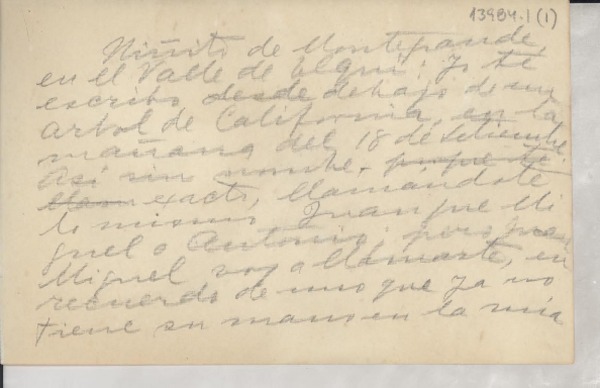 13984.1 (1)
Niñito de Montegrande,
en el Valle de Elqui: Yo te
escribo desde debajo de un
arbol de California, en la
mañana del 18 de setiembre.
Así sin nombre, porque te
llam exacto, llamándote
lo mismo Juan que Mi
guel o Antonio; pero Juan
Miguel voy a llamarte, en
recuerdo de uno que ya no
tiene su mano en la mía